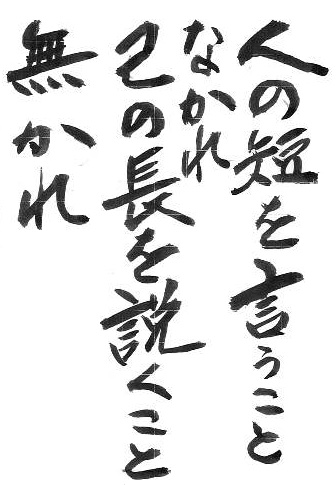 人の短を言うこと
なかれ
己の長を説くこと
無かれ